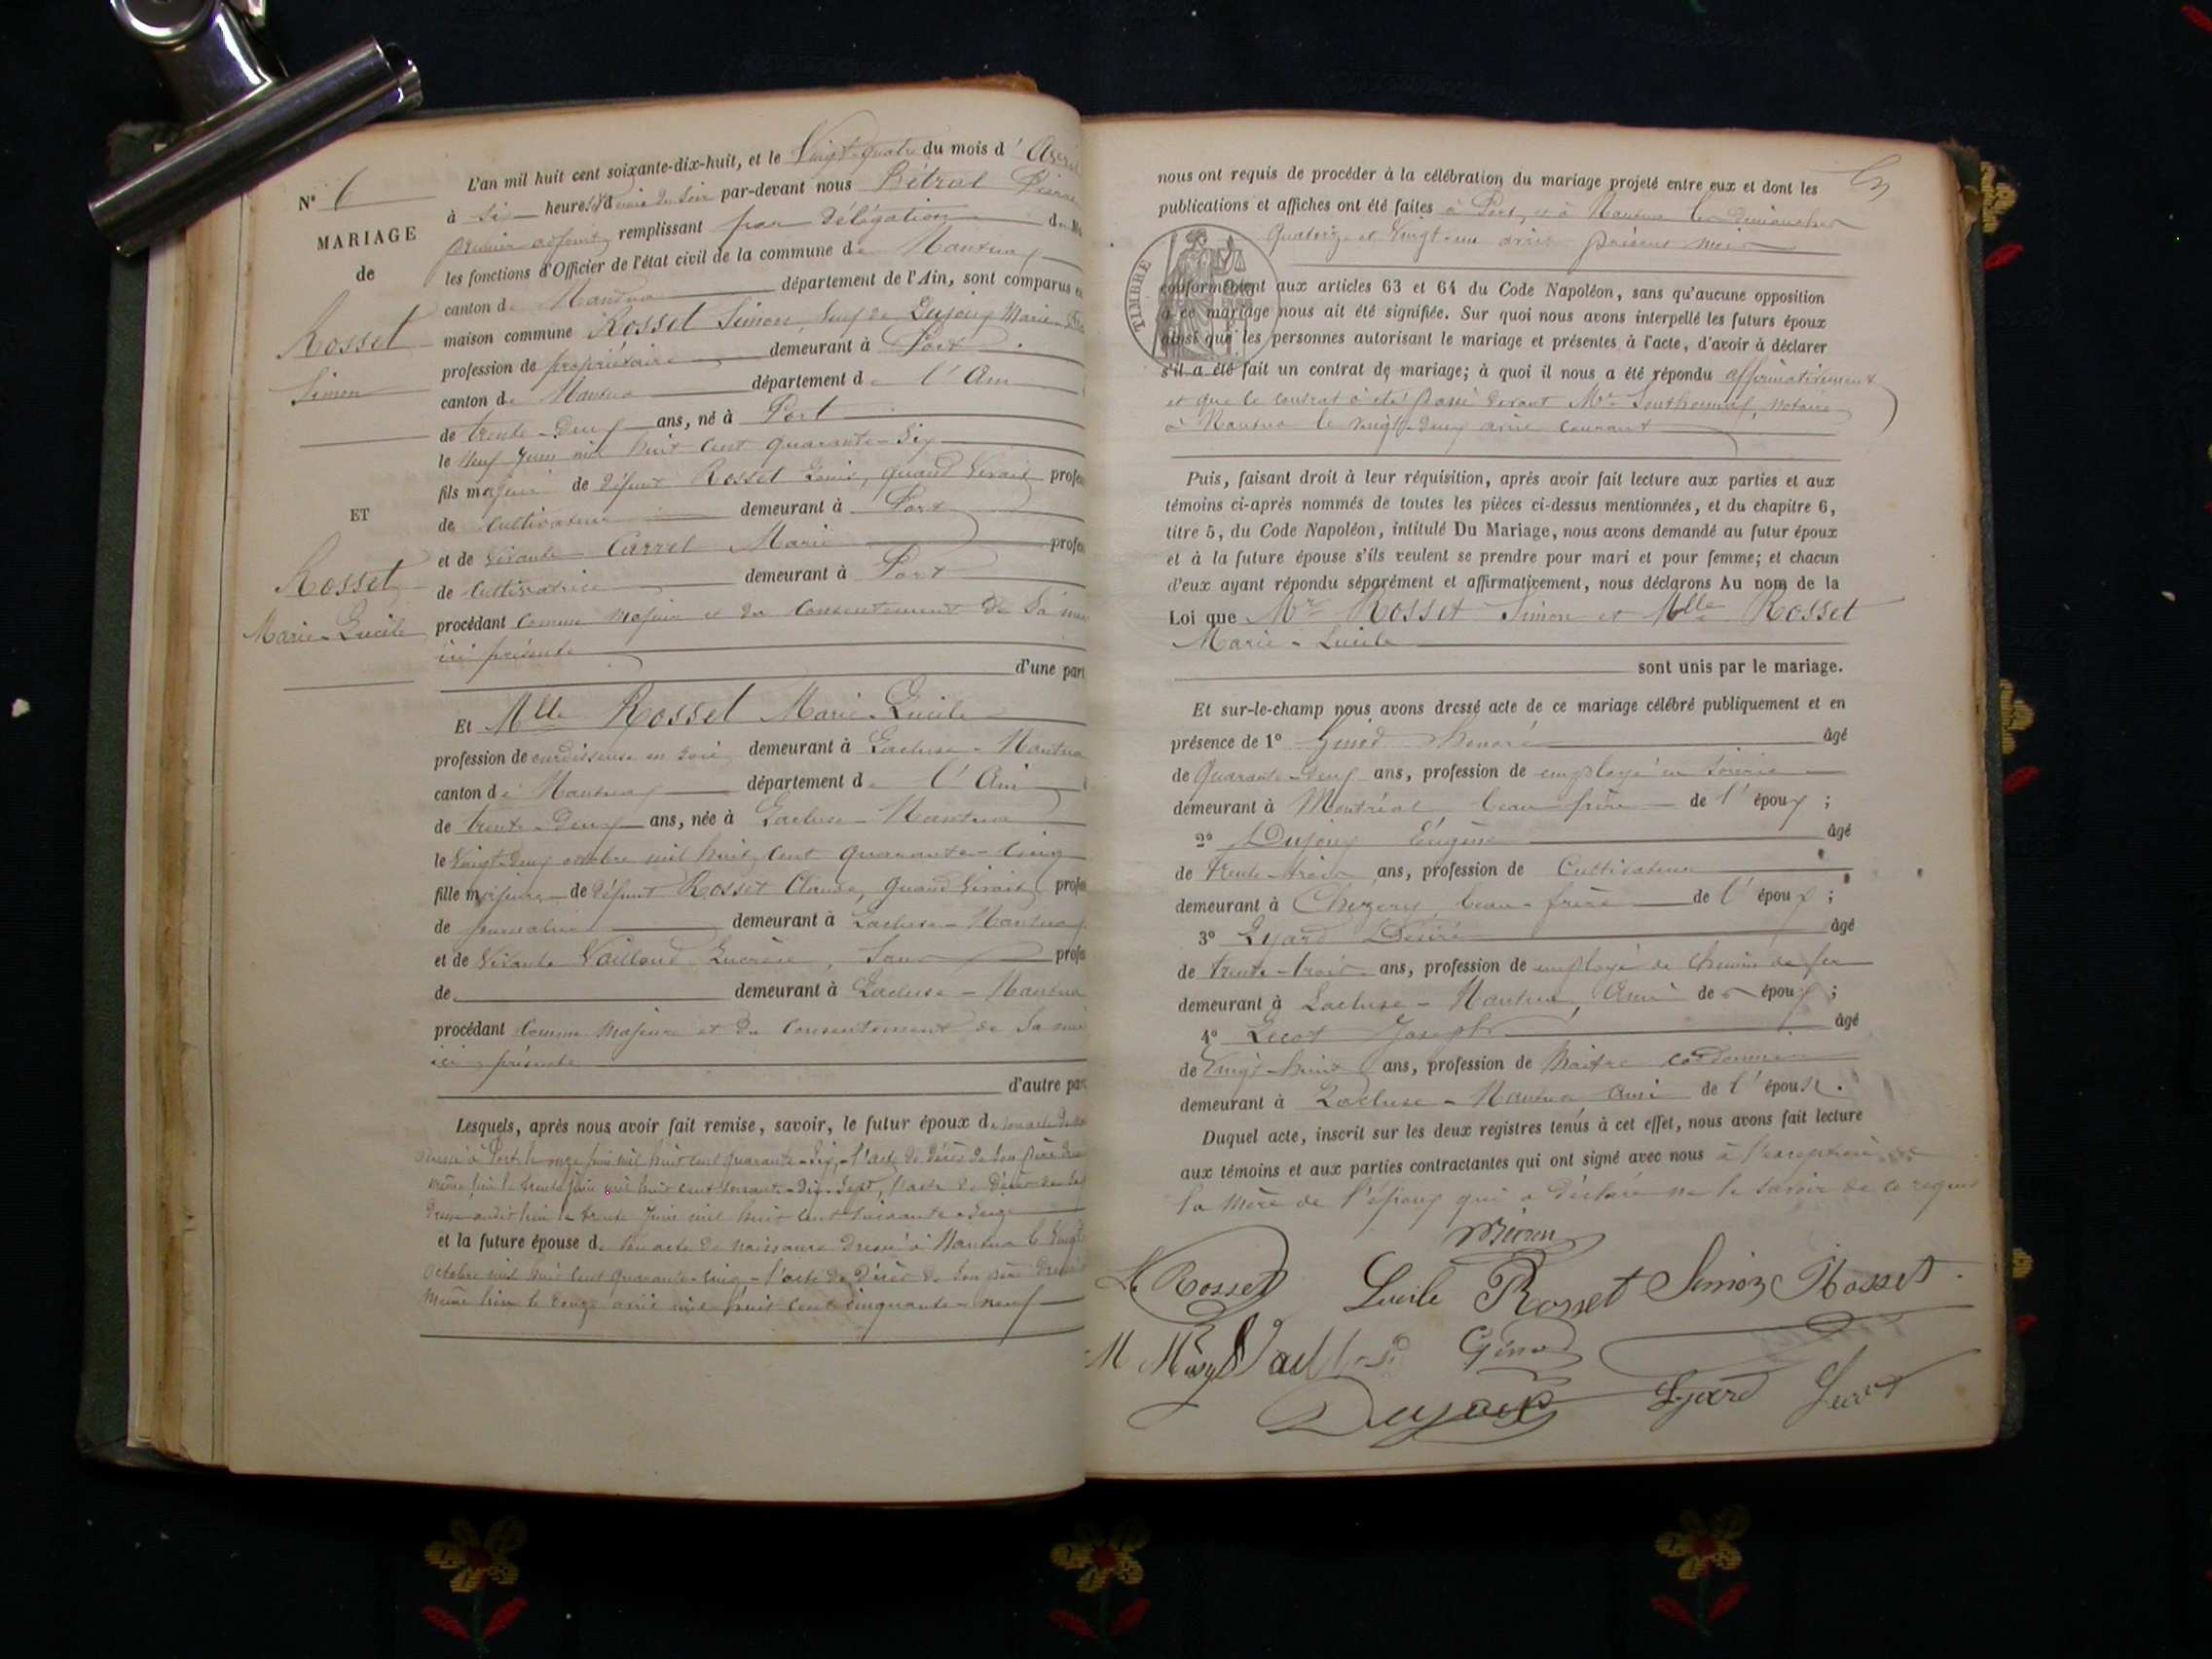 N° 6
MARIAGE
de
Rosset
Simon
ET
Rosset
Marie-Lucile
L'an mil huit cent soixante-dix-huit, et le Vingt-quatre du mois d'Avril
à six heures du soir par-devant nous Bétral Pierre
premier adjoint remplissant par délégation
les fonctions d'Officier de l'état civil de la commune de Nantua
canton de Nantua département de l'Ain, sont comparus en
maison commune Rosset Simon, veuf de Dujoux Marie
profession de propriétaire demeurant à Port
canton de Nantua département de l'Ain
de trente-deux ans, né à Port
le neuf Juin mil huit cent quarante-six
fils majeur de défunt Rosset Louis, quand vivait profes
de Cultivateur demeurant à Port
et de vivante Carrel Marie profes
de Cultivatrice demeurant à Port
procédant comme majeur et du consentement de sa mère
ici présente
d'une part
Et Mlle Rosset Marie-Lucile
profession de ourdisseuse en soie demeurant à Lacluse-Nantua
canton de Nantua département de l'Ain
de trente-deux ans, née à Lacluse-Nantua
le vingt-deux octobre mil huit cent quarante-cinq
fille majeure de défunt Rosset Claude, quand vivait profes
de journalier demeurant à Lacluse-Nantua
et de vivante Vailloud Lucrèce, sans profes
de demeurant à Lacluse-Nantua
procédant comme majeure et du consentement de sa mère
ici présente
d'autre part
Lesquels, après nous avoir fait remise, savoir, le futur époux de son acte de
dressé à Port le onze juin mil huit cent quarante-six, l'acte de décès de son père
même lieu le trente juin mil huit cent soixante-dix-sept, l'acte de décès de
audit lieu le trente Juin mil huit cent soixante-seize
et la future épouse d. son acte de naissance dressé à Nantua le vingt
octobre mil huit cent quarante-cinq - l'acte de décès de son père dressé
même lieu le douze avril mil huit cent cinquante-neuf
nous ont requis de procéder à la célébration du mariage projeté entre eux et dont les
publications et affiches ont été faites à Port, et à Nantua les dimanches
quatorze et vingt-un avril présent mois
TIMBRE
conformément aux articles 63 et 64 du Code Napoléon, sans qu'aucune opposition
à ce mariage nous ait été signifiée. Sur quoi nous avons interpellé les futurs époux
ainsi que les personnes autorisant le mariage et présentes à l'acte, d'avoir à déclarer
s'il a été fait un contrat de mariage; à quoi il nous a été répondu affirmativement
et que le contrat a été passé devant Me Southonnax, notaire
à Nantua le vingt-deux avril courant
Puis, faisant droit à leur réquisition, après avoir fait lecture aux parties et aux
témoins ci-après nommés de toutes les pièces ci-dessus mentionnées, et du chapitre 6,
titre 5, du Code Napoléon, intitulé Du Mariage, nous avons demandé au futur époux
et à la future épouse s'ils veulent se prendre pour mari et pour femme; et chacun
d'eux ayant répondu séparément et affirmativement, nous déclarons Au nom de la
Loi que Mr Rosset Simon et Mlle Rosset
Marie-Lucile
sont unis par le mariage.
Et sur-le-champ nous avons dressé acte de ce mariage célébré publiquement et en
présence de 1° Honoré âgé
de quarante-deux ans, profession de employé en soierie
demeurant à Montréal, beau frère de l'époux ;
2° Dujoux Eugène âgé
de trente-trois ans, profession de Cultivateur
demeurant à Chezery, beau-frère de l'époux ;
3° Lyard Désiré âgé
de trente-trois ans, profession de employé de chemin de fer
demeurant à Lacluse-Nantua, Ami de époux ;
4° Lecot Joseph âgé
de vingt-huit ans, profession de Maître cordonnier
demeurant à Lacluse-Nantua ami de l'épouse.
Duquel acte, inscrit sur les deux registres tenus à cet effet, nous avons fait lecture
aux témoins et aux parties contractantes qui ont signé avec nous à l'exception de
la mère de l'époux qui a déclaré ne le savoir de ce requis
Rosset Lucile Rosset Simon Rosset
Dujoux Lyard